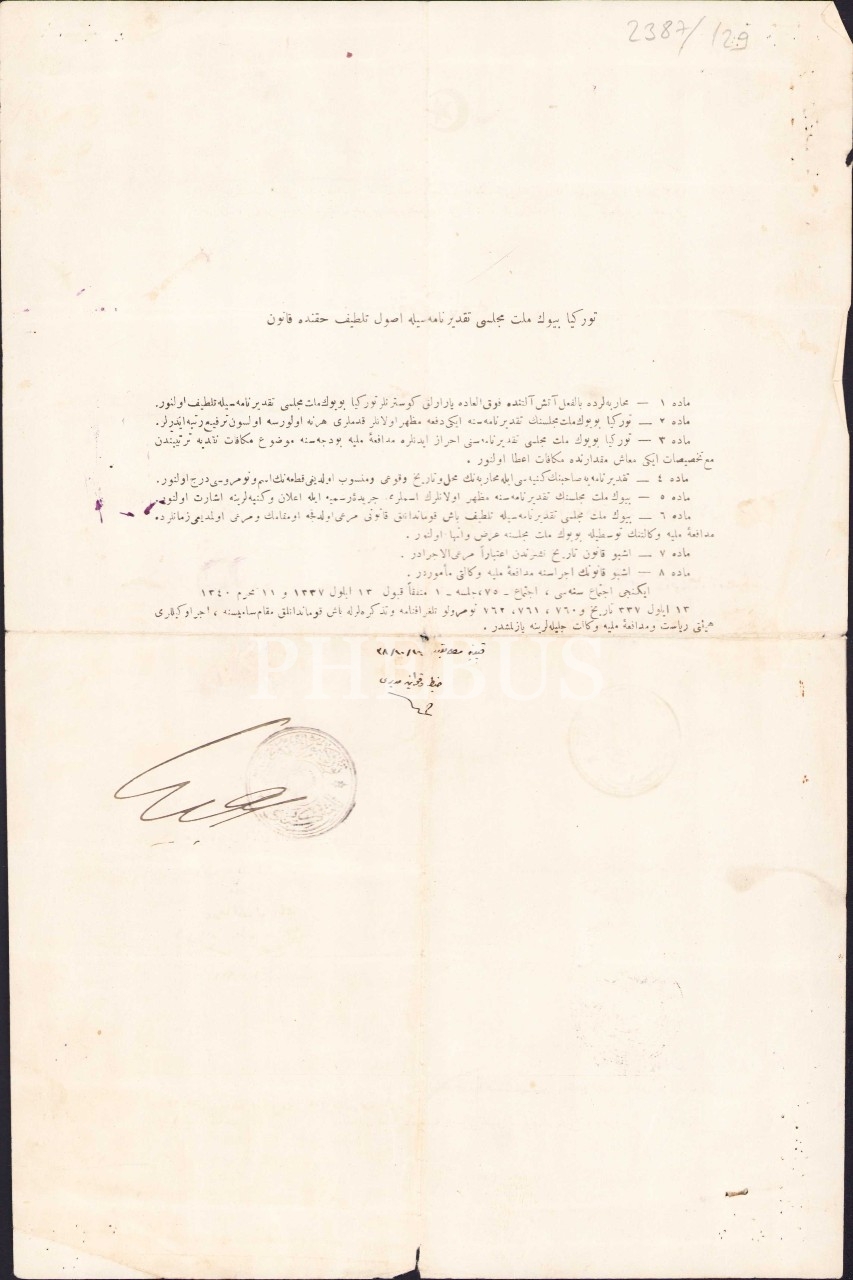 2387/129
توركيا بيوك ملت مجلسى تقديرنامه‌سيله اصول تلطيف حقنده قانون
ماده ١ — محاربه‌لرده بالفعل آتش آلتنده فوق‌العاده يارارلق كوسترنلر توركيا بويوك ملت مجلسى تقديرنامه‌سيله تلطيف اولنور.
ماده ٢ — توركيا بويوك ملت مجلسنك تقديرنامه‌سنه ايكى دفعه مظهر اولانلر قدملرى هرنه اولورسه اولسون ترفيع رتبه ايدرلر.
ماده ٣ — توركيا بويوك ملت مجلسى تقديرنامه‌سنى احراز ايدنلره مدافعهٔ مليه بودجه‌سنه موضوع مكافات نقديه ترتيبندن
مع تخصيصات ايكى معاش مقدارنده مكافات اعطا اولنور.
ماده ٤ — تقديرنامه‌يه صاحبنك كنيه‌سى ايله محاربه‌نك محل و تاريخ وقوعى و منسوب اولديغى قطعه‌نك اسم و نومروسى درج اولنور.
ماده ٥ — بيوك ملت مجلسنك تقديرنامه‌سنه مظهر اولانلرك اسملرى جريدهٔ رسميه ايله اعلان و كنيه‌لرينه اشارت اولنور.
ماده ٦ — بيوك ملت مجلسى تقديرنامه‌سيله تلطيف باش قومandanلق قانونى مرعى اولدقجه او مقامك و مرعى اولمديغى زمانلرده
مدافعهٔ مليه وكالتنك توسطيله بويوك ملت مجلسنه عرض و انها اولنور.
ماده ٧ — اشبو قانون تاريخ نشرندن اعتباراً مرعى‌الاجرادر.
ماده ٨ — اشبو قانونك اجراسنه مدافعهٔ مليه وكالتى مأموردر.
ايكنجى اجتماع سنه‌سى، اجتماع ـ ٧٥، جلسه ـ ١ متفقاً قبول ١٣ ايلول ١٣٣٧ و ١١ محرم ١٣٤٠
١٣ ايلول ٣٣٧ تاريخ و ٧٦٠، ٧٦١، ٧٦٢ نومرولو تلغرافنامه و تذكره‌لرله باش قوماندانلق مقام ساميسنه، اجرا وكيللرى
هيئتى رياست و مدافعهٔ مليه وكالت جليله‌لرينه يازلمشدر.
قيدينه مطابقدر
ضبط و قوانين مديرى
PHEBUS